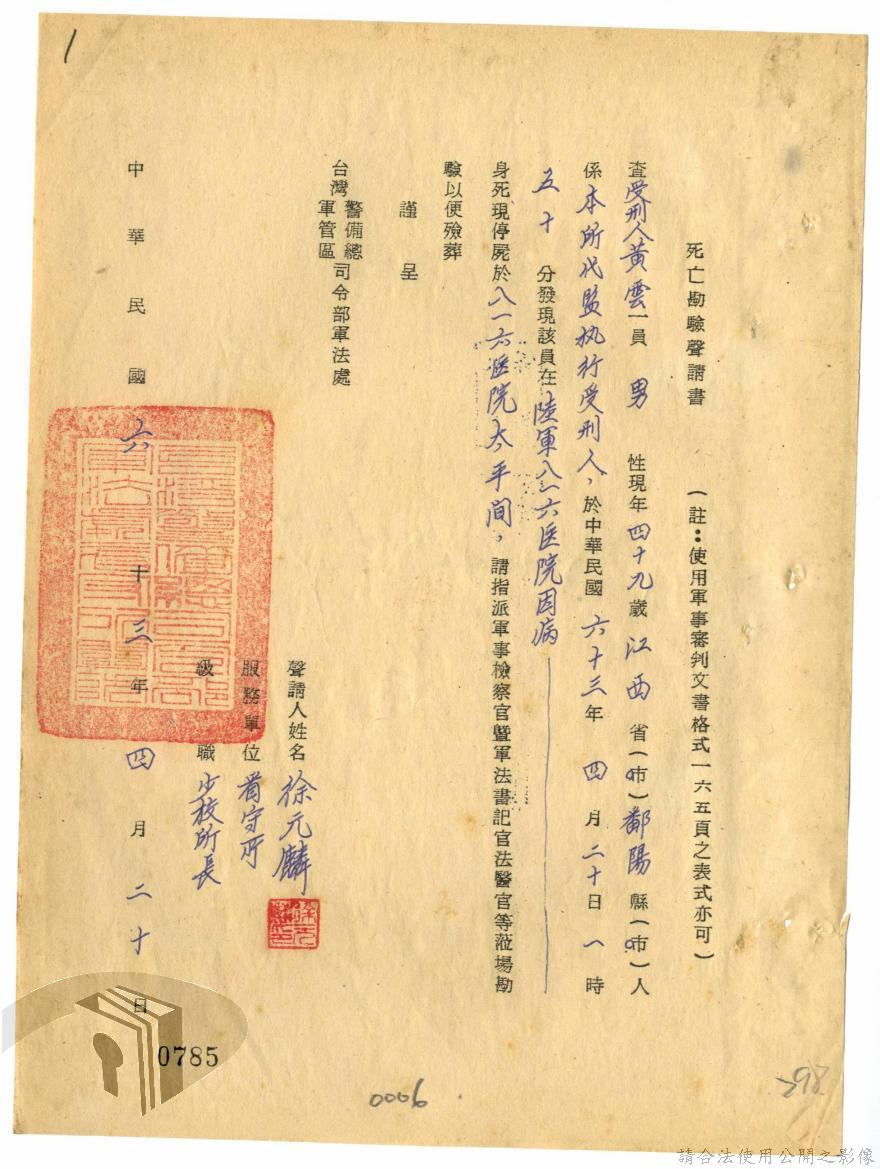 1
死亡勘驗聲請書　（註：使用軍事審判文書格式一六五頁之表式亦可）
查受刑人黃雲一員　男　性現年四十九歲江西省（市）鄱陽縣（市）人
係本所代監执行受刑人，於中華民國六十三年四月二十日一時
五十分發現該員在陸軍八一六医院因病
身死現停屍於八一六医院太平间，請指派軍事檢察官暨軍法書記官法醫官等蒞場勘
驗以便殮葬
謹呈
台灣警備總軍管區司令部軍法處
聲請人姓名徐元麟
服務單位看守所
級職少校所長
中華民國六十三年四月二十日
0785
0006
298
請合法使用公開之影像